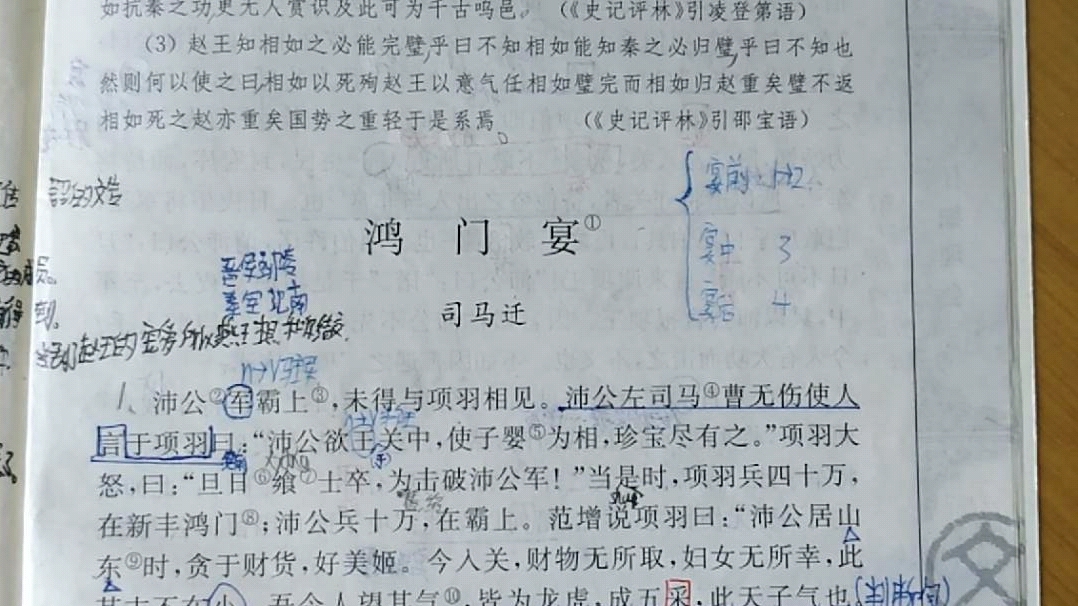 如抗秦之功更无人赏识及此可为千古呜邑。（《史记评林》引凌登第语）
（3）赵王知相如之必能完璧乎曰不知相如能知秦之必归璧乎曰不知也
然则何以使之曰相如以死殉赵王以意气任相如璧完而相如归赵重矣璧不返
相如死之赵亦重矣国势之重轻于是系焉　　（《史记评林》引邵宝语）
宴前 1 2
宴中 3
宴后 4
鸿门宴①
司马迁
n→v 驻军
1、沛公②军霸上③，未得与项羽相见。沛公左司马④曹无伤使人
言于项羽曰：“沛公欲王关中，使子婴⑤为相，珍宝尽有之。”项羽大
怒，曰：“旦日⑥飨⑦士卒，为击破沛公军！”当是时，项羽兵四十万，
在新丰鸿门⑧；沛公兵十万，在霸上。范增说项羽曰：“沛公居山
东⑨时，贪于财货，好美姬。今入关，财物无所取，妇女无所幸，此
其志不在小。吾令人望其气⑩，皆为龙虎，成五采，此天子气也。